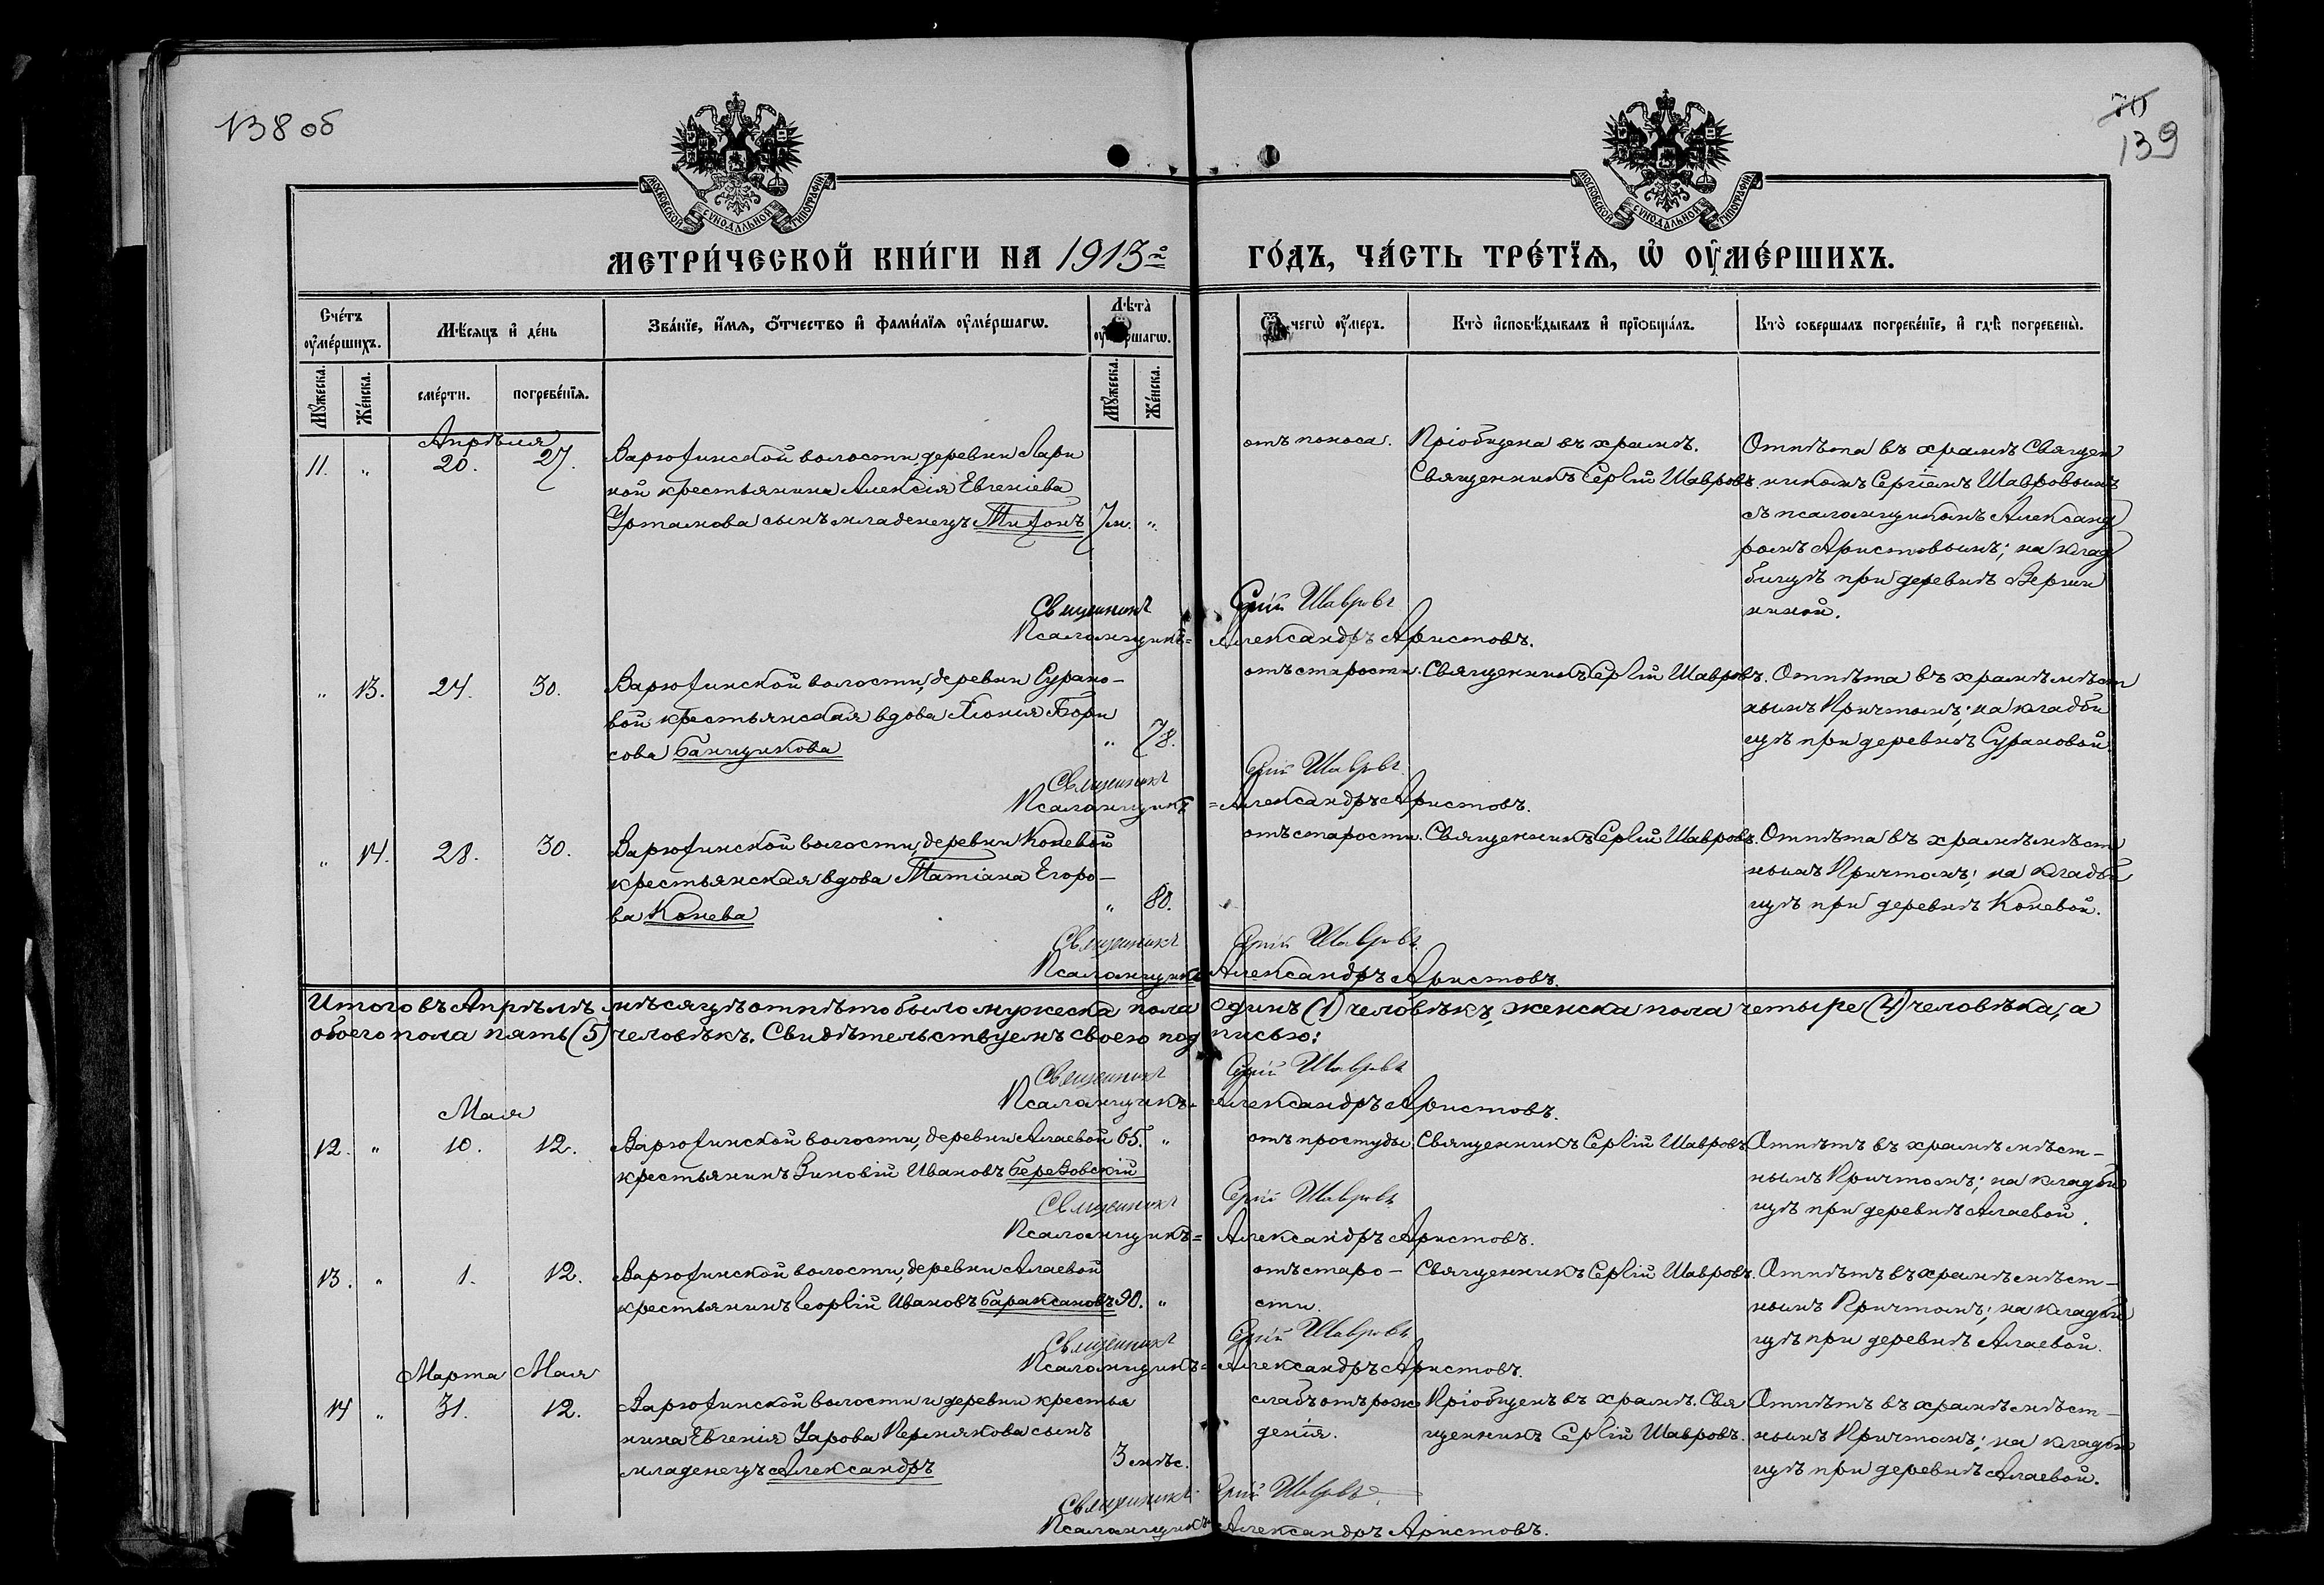 138 об
70
139
МОСКОВСКОЙ СѴНОДАЛЬНОЙ ТИПОГРАФІИ
МОСКОВСКОЙ СѴНОДАЛЬНОЙ ТИПОГРАФІИ
МЕТРИ́ЧЕСКОЙ КНИ́ГИ НА 1913й ГО́ДЪ, ЧА́СТЬ ТРЕ́ТЇѦ, Ѡ҆ ОУ҆МЕ́РШИХЪ.
Сче́тъ оу҆ме́ршихъ.
Мѣ́сѧцъ и҆ де́нь
Зва́нїе, и҆́мѧ, ѻ҆́тчество и҆ фами́лїѧ оу҆ме́ршагѡ.
Лѣ́та
Ѿ чегѡ̀ оу҆́меръ.
Кто̀ и҆сповѣ́дывалъ и҆ прїѡбща́лъ.
Кто̀ совершалъ погребе́нїе, и҆ гдѣ̀ погребены̀.
Мꙋ́жеска.
Же́нска.
сме́рти.
погребе́нїѧ.
Мꙋ́жеска.
Же́нска.
Апрѣля
11. " 20. 27. Варюхинской волости, деревни Лари
ной крестьянина Алексія Евгеніева
сынъ младенецъ 7 м. "
отъ поноса.
Пріобщена въ храмѣ.
Священникъ Сергій Шавровъ.
Отпѣта въ храмѣ Священ
никомъ Сергіемъ Шавровымъ
съ псаломщикомъ Александ
ромъ Аристовымъ; на клад
бищѣ при деревнѣ Верши
ниной.
Священникъ Сергій Шавровъ
Псаломщикъ = Александръ Аристовъ.
" 13. 24. 30. Варюхинской волости, деревни Сурано-
вой крестьянская вдова Хіонія Бори
сова Банщикова " 78.
отъ старости. Священникъ Сергій Шавровъ. Отпѣта въ храмѣ мѣст
нымъ Причтомъ; на кладби
щѣ при деревнѣ Сурановой.
Священникъ Сергій Шавровъ
Псаломщикъ = Александръ Аристовъ.
" 14. 28. 30. Варюхинской волости, деревни Коневой
крестьянская вдова Татіана Егоро-
ва Конева " 80.
отъ старости. Священникъ Сергій Шавровъ. Отпѣта въ храмѣ мѣст
нымъ Причтомъ; на кладби
щѣ при деревнѣ Коневой.
Священникъ Сергій Шавровъ
Псаломщикъ Александръ Аристовъ.
Итого въ Апрѣлѣ мѣсяцѣ отпѣто было мужеска пола одинъ (1) человѣкъ, женска пола четыре (4) человѣка, а
обоего пола пять (5) человѣкъ. Свидѣтельствуемъ своею подписью:
Священникъ Сергій Шавровъ
Псаломщикъ = Александръ Аристовъ.
Мая
12. " 10. 12. Варюхинской волости, деревни Алаевой 65. "
крестьянинъ Зиновій Ивановъ Березовскій
отъ простуды. Священникъ Сергій Шавровъ. Отпѣтъ въ храмѣ мѣст-
нымъ Причтомъ; на кладби
щѣ при деревнѣ Алаевой.
Священникъ Сергій Шавровъ
Псаломщикъ = Александръ Аристовъ.
13. " 1. 12. Варюхинской волости, деревни Алаевой
крестьянинъ Георгій Ивановъ Бараксановъ 90. "
отъ старо- Священникъ Сергій Шавровъ. Отпѣтъ въ храмѣ мѣст-
сти. нымъ Причтомъ; на кладби
щѣ при деревнѣ Алаевой.
Священникъ Сергій Шавровъ
Псаломщикъ = Александръ Аристовъ.
Марта Мая
14 " 31. 12. Варюхинской волости и деревни крестья
нина Евгенія Уарова Пермякова сынъ
младенецъ Александръ 3 мѣс.
слабъ отъ рож Пріобщенъ въ храмѣ. Свя Отпѣтъ въ храмѣ мѣст-
денія. щенникъ Сергій Шавровъ. нымъ Причтомъ; на кладби
щѣ при деревнѣ Алаевой.
Священникъ Сергій Шавровъ
Псаломщикъ Александръ Аристовъ.